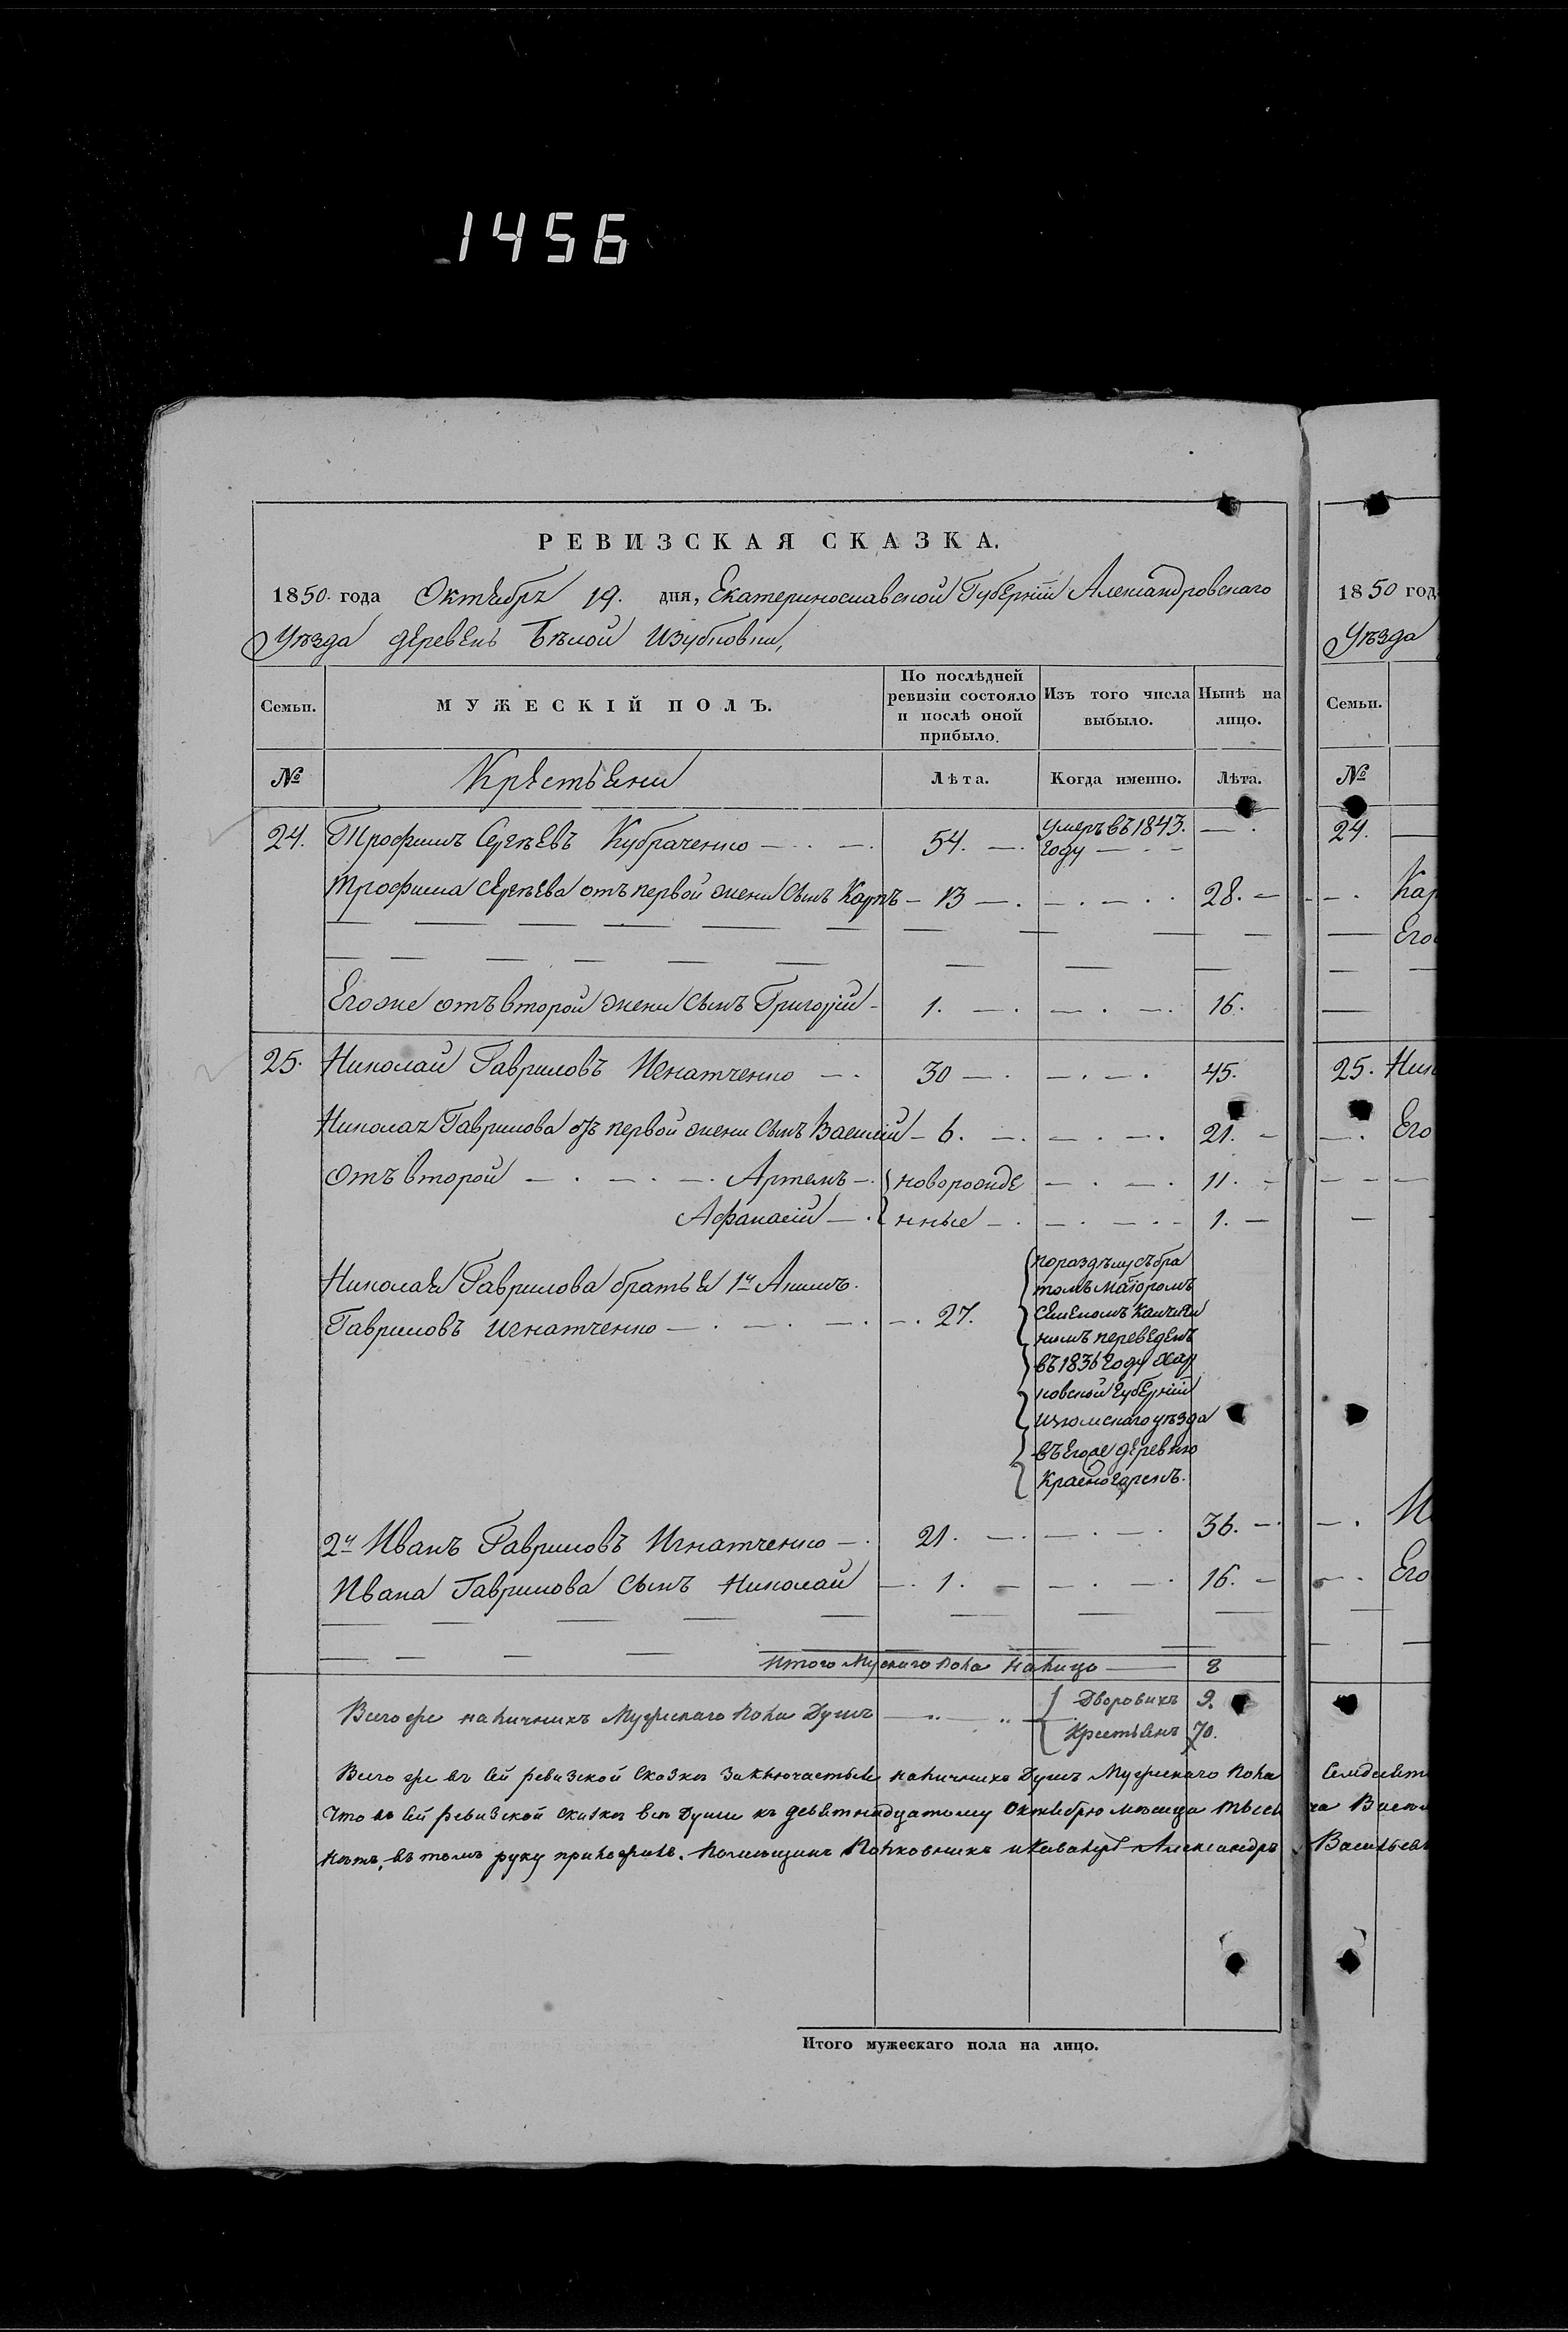 1456
РЕВИЗСКАЯ СКАЗКА.
1850. года Октября 19. дня, Екатеринославской Губерніи Александровскаго
Уѣзда деревень Бѣлой Изубковки,
Семьи. МУЖЕСКІЙ ПОЛЪ. По послѣдней ревизіи состояло и послѣ оной прибыло. Изъ того числа выбыло. Нынѣ на лицо.
№ Крестьяни Лѣта. Когда именно. Лѣта.
24. Трофимъ Сергѣевъ Кубраченко 54. Умеръ въ 1843. году
Трофима Сергѣева отъ первой жени сынъ Карпъ 13 28.
Его же отъ второй жени сынъ Григорій 1. 16.
25. Николай Гавриловъ Игнатченко 30 45.
Николая Гаврилова отъ первой жени сынъ Василій 6. 21.
Отъ второй Артемъ новорожде 11.
Афанасій нные 1.
Николая Гаврилова братья 1й Акимъ.
Гавриловъ Игнатченко 27.
поразделу съ бра
томъ Маіоромъ
Семеномъ
нимъ переведенъ
въ 1836 году Хар
ковской губерніи
Изюмскаго уѣзда
въ Его же деревню
Красногорскъ.
2й Иванъ Гавриловъ Игнатченко 21. 36.
Ивана Гаврилова сынъ Николай 1. 16.
Итого Мужскаго пола на лицо 8
Всего же наличныхъ Мужескаго пола Душъ Дворовыхъ 9.
Крестьянъ 70.
Всего же въ сей ревизской сказкѣ заключается наличныхъ Душъ Мужескаго пола
Что въ сей ревизской сказкѣ всѣ Души къ девятнадцатому Октября мѣсяца тысе
въ томъ руку приложилъ. Помѣщикъ Полковникъ и Кавалеръ Александръ
Итого мужескаго пола на лицо.
1850 год
Уѣзда
Семьи.
№
24.
Кар
Его
25. Ник
Его
И
Его
Семдесят
ча Восем
Васильев